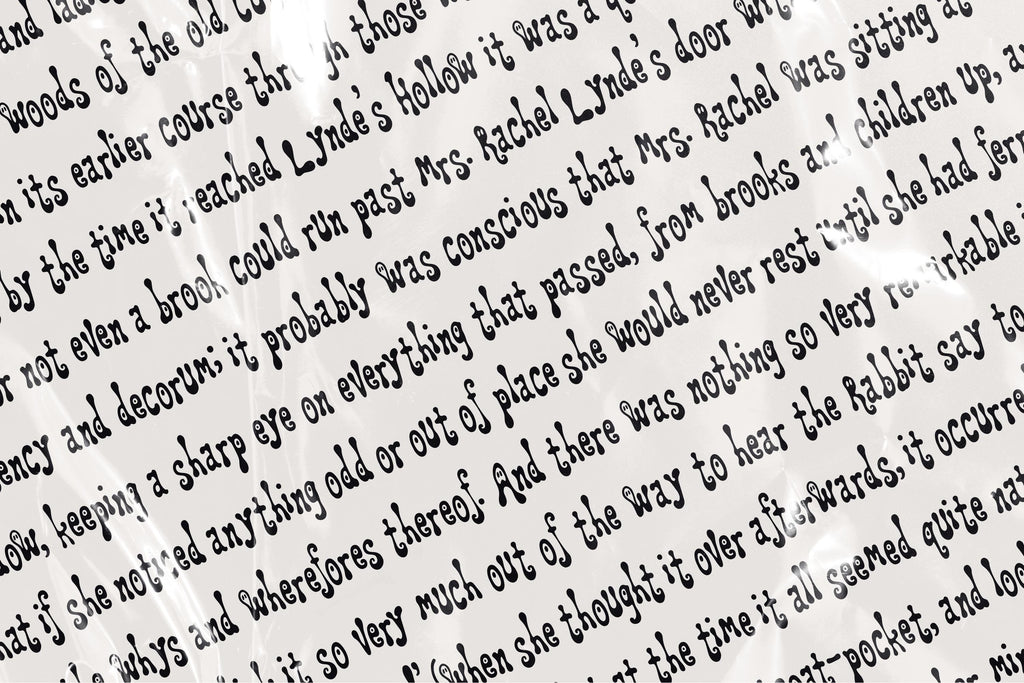 and ladies'
woods of the old
in its earlier course through those
by the time it reached Lynde's Hollow it was a
not even a brook could run past Mrs. Rachel Lynde's door
and decorum; it probably was conscious that Mrs. Rachel was sitting at
keeping a sharp eye on everything that passed, from brooks and children up,
that if she noticed anything odd or out of place she would never rest until she had
whys and wherefores thereof. And there was nothing so very remarkable
it so very much out of the way to hear the Rabbit say to
(when she thought it over afterwards, it
at the time it all seemed quite
and